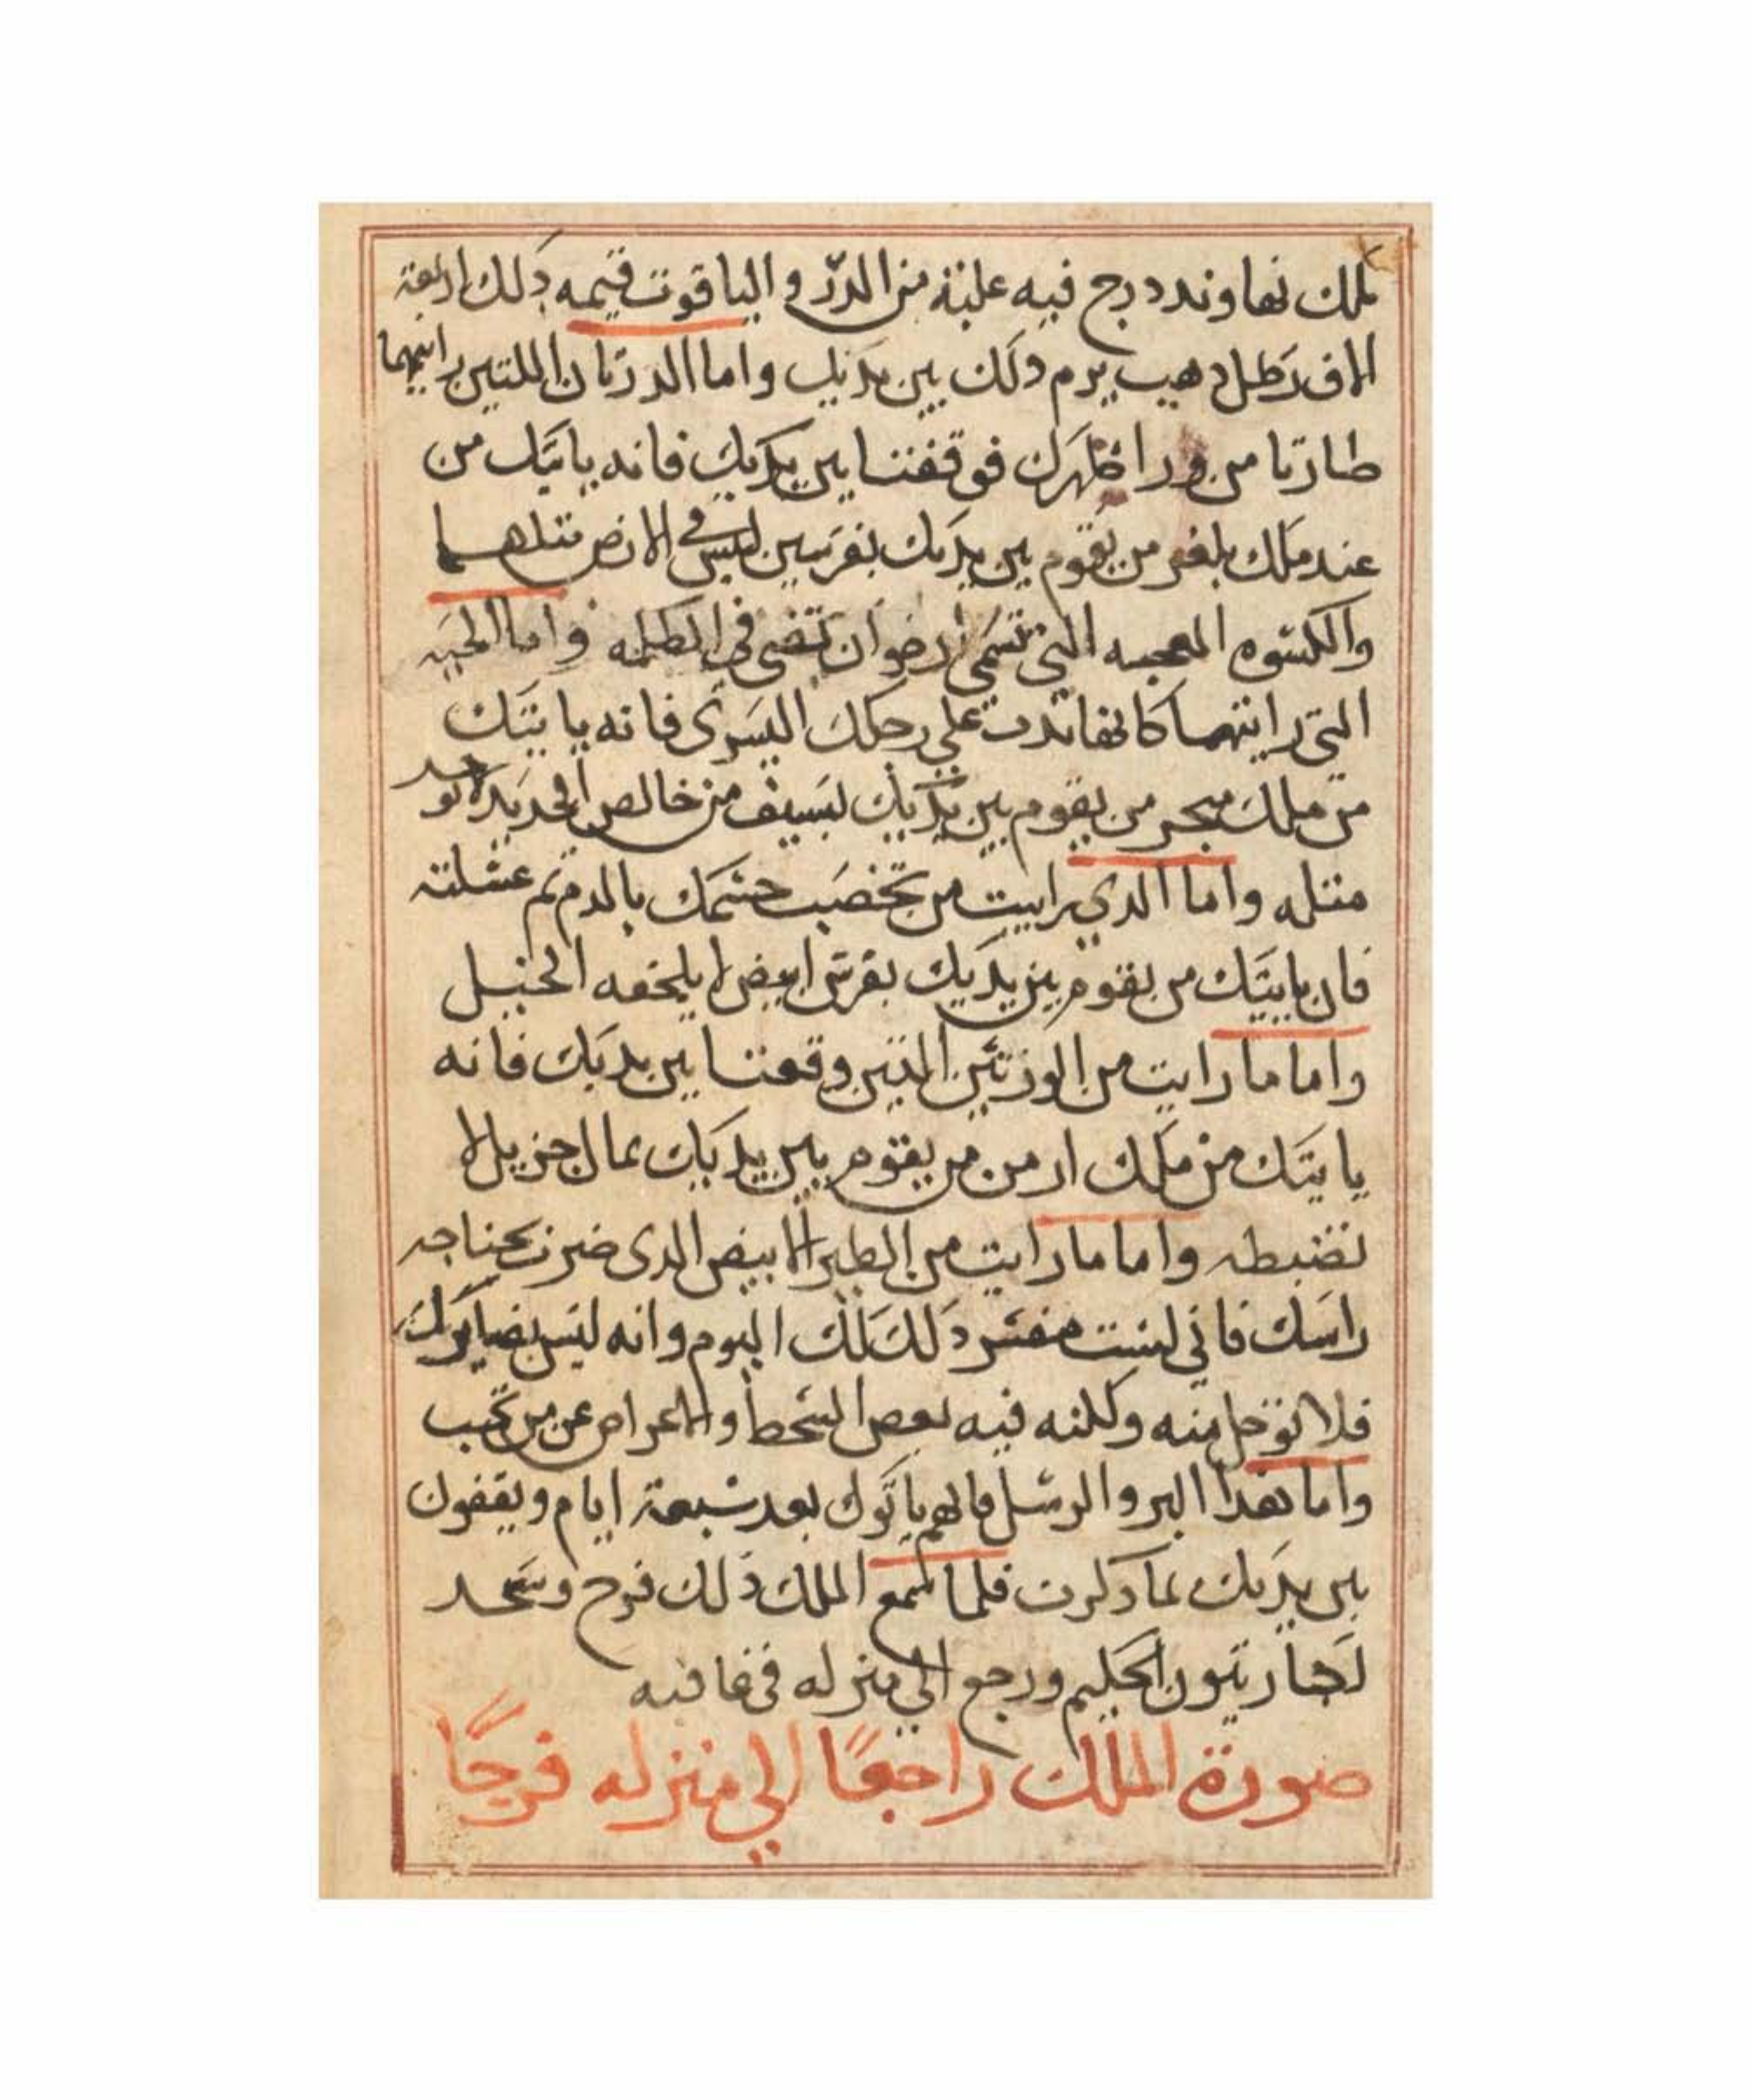 ملك نهاوند درج فيه علبة من الدرّ والياقوت قيمه ذلك اربعة
الاف رطل دهب يرم دلك بين يديك واما الوزتان اللتين رايتهما
طارتا من ورا ظهرك فوقفتا بين يديك فانه ياتيك من
عند ملك بلخ من يقوم بين يديك بفرسين ليس في الارض مثلهما
والكسوه المعجبه التي تسمى ارضوان تضى في الظلمه واما الحيه
التي رايتها كانها تدب على رجلك اليسرى فانه ياتيك
من ملك من يقوم بين يديك بسيف من خالص الحديد لا يوجد
مثله واما الدي رايت من تخضب جسمك بالدم ثم غسلته
فان ياتيك من يقوم بين يديك بفرس ابيض لا يلحقه الخيل
واما ما رايت من الوزتين التين وقعتا بين يديك فانه
ياتيك من ملك ارمن من يقوم بين يديك بمال جزيل لا
تضبطه واما ما رايت من الطير الابيض الدى ضرب بجناحه
راسك فاني لست مفسر دلك لك اليوم وانه ليس بضايرك
فلا توجل منه ولكنه فيه بعض السخط والاعراض عن من تحب
واما هدا البر والرسل فانهم ياتوك بعد سبعة ايام ويقفون
بين يديك بما دكرت فلما سمع الملك ذلك فرح وسجد
لكباريتون الحكيم ورجع الي منزله في عافيه
صورة الملك راجعًا الي منزله فرحًا